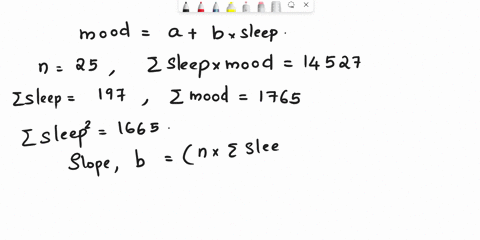 mood = a + b × sleep.
n = 25 , Σ sleep × mood = 14527
Σ sleep = 197 , Σ mood = 1765
Σ sleep² = 1665.
Slope, b = (n × Σ slee